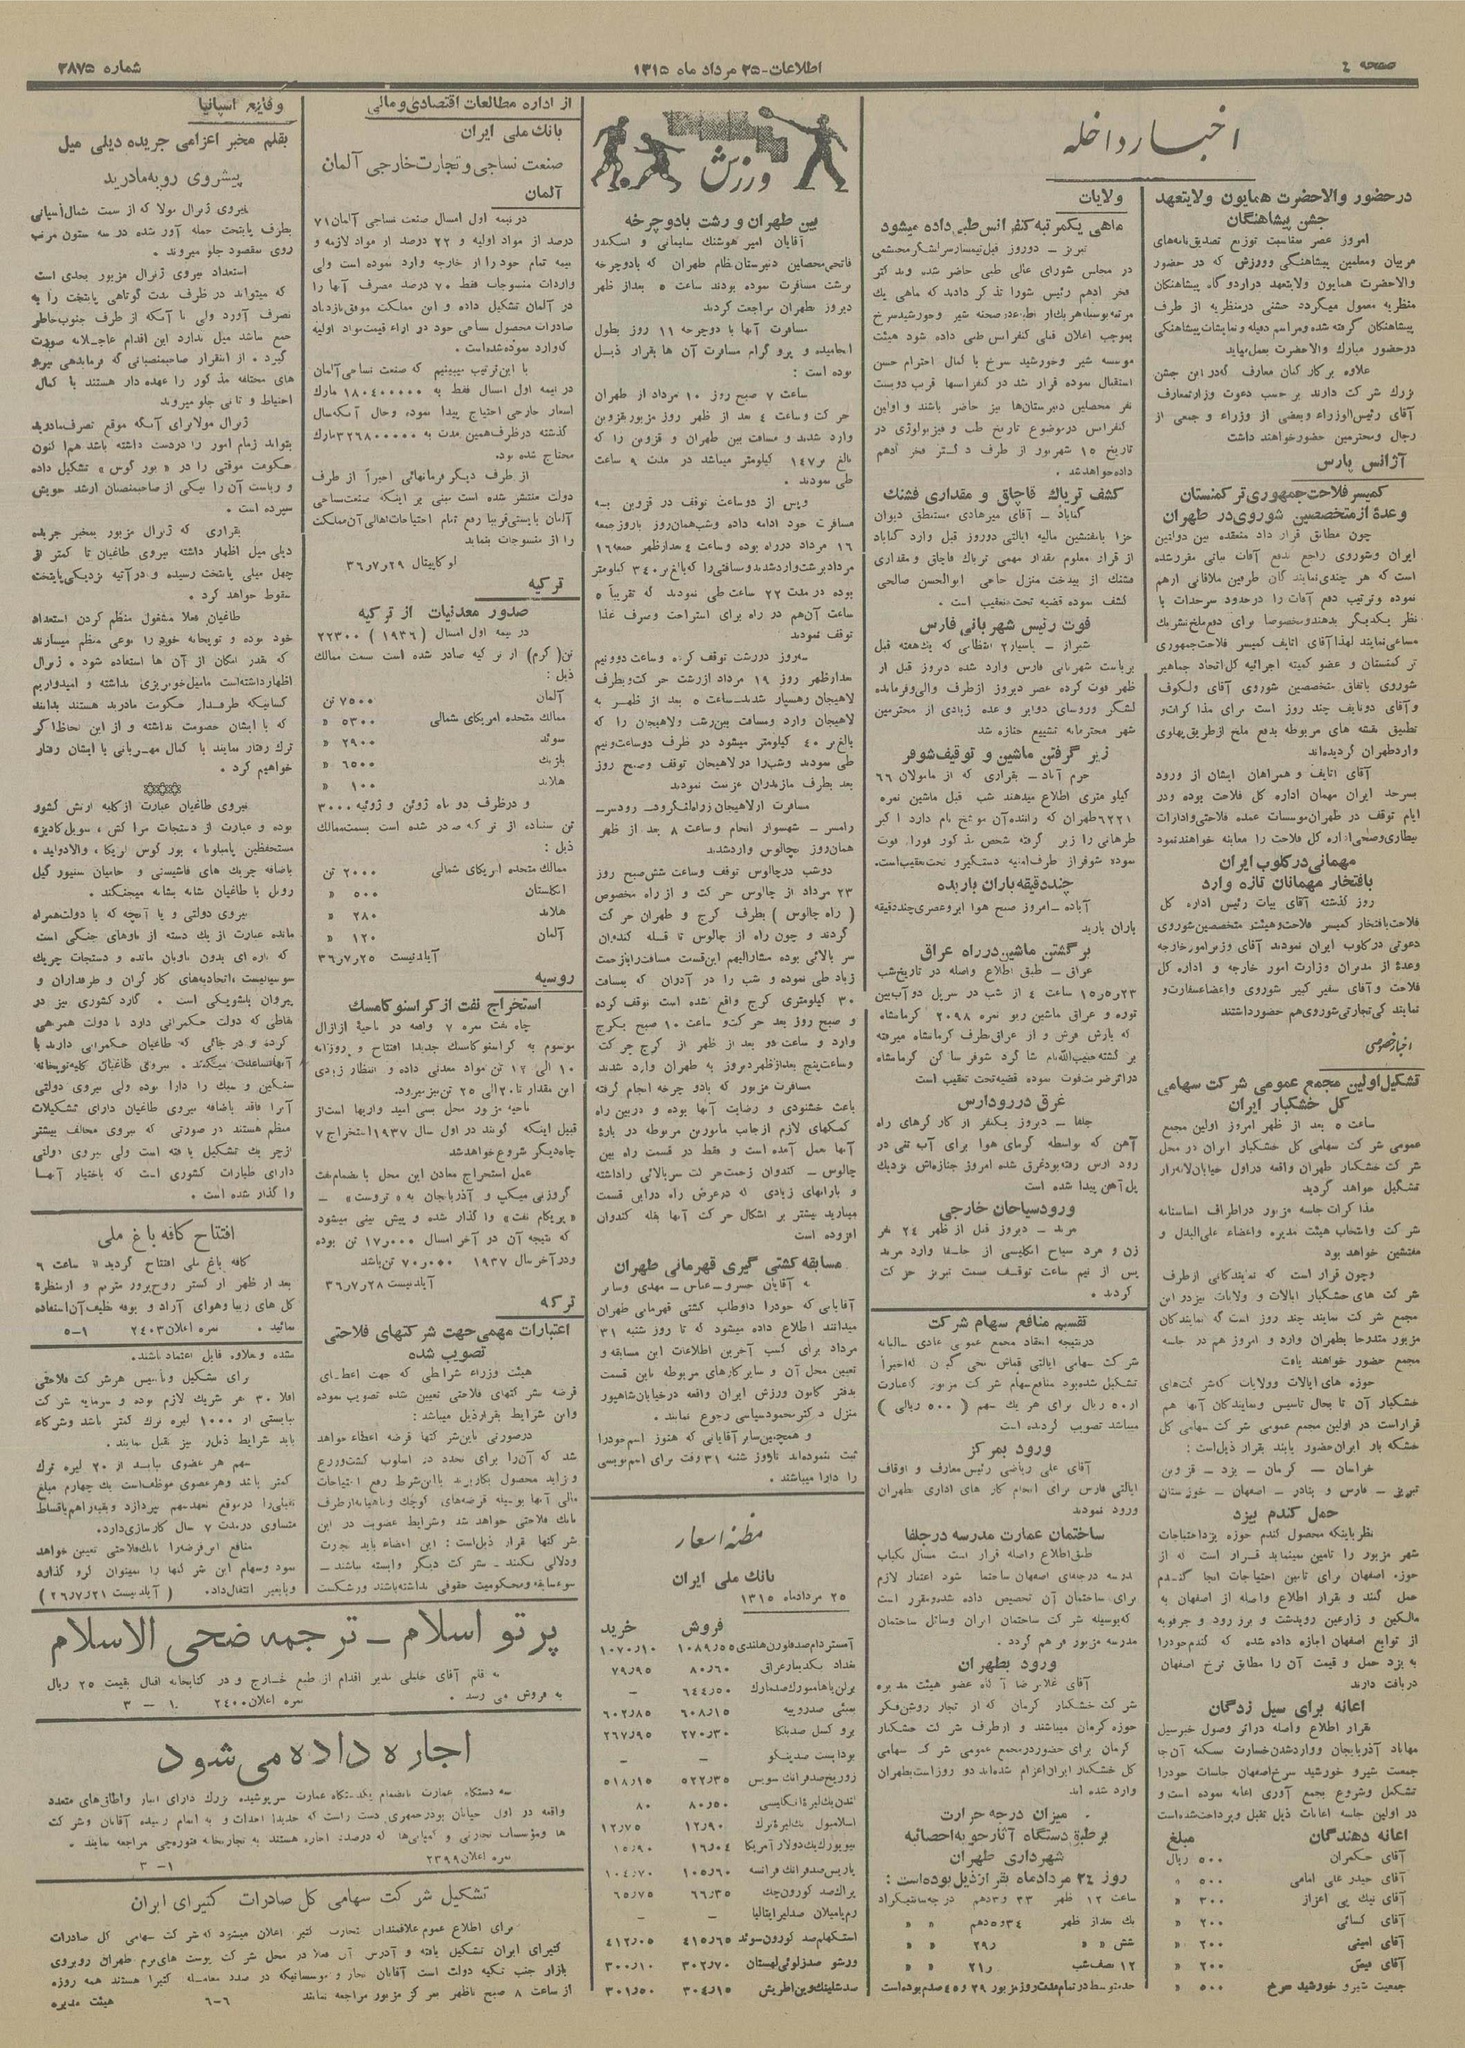 صفحه ٤
اطلاعات-۲۵ مرداد ماه ۱۳۱۵
شماره ۳۸۷۵
اخبار داخله
درحضور والاحضرت همایون ولایتعهد
جشن پیشاهنگان
امروز عصر بمناسبت توزیع تصدیق‌نامه‌های
مربیان ومعلمین پیشاهنگی وورزش که در حضور
والاحضرت همایون ولایتعهد دراردوگاه پیشاهنگان
منظریه معمول میگردد جشنی درمنظریه از طرف
پیشاهنگان گرفته شده ومراسم دفیله ونمایشات پیشاهنگی
درحضور مبارک والاحضرت بعمل میاید
علاوه برکار کنان معارف که‌در این جشن
بزرگ شرکت دارند بر حسب دعوت وزارتمعارف
آقای رئیس‌الوزراء وبعضی از وزراء و جمعی از
رجال ومحترمین حضورخواهند داشت
آژانس پارس
کمیسر فلاحت جمهوری ترکمنستان
وعدهٔ ازمتخصصین شوروی در طهران
چون مطابق قرار داد منعقده بین دولتین
ایران وشوروی راجع بدفع آفات نباتی مقررشده
است که هر چندی نمایند گان طرفین ملاقاتی ازهم
نموده وترتیب دفع آفات را درحدود سرحدات با
نظر یکدیگر بدهند ومخصوصا برای دفع ملخ تشریک
مساعی نمایند لهذا آقای اتایف کمیسر فلاحت جمهوری
تر کمنستان و عضو کمیته اجرائیه کل اتحاد جماهیر
شوروی باتفاق متخصصین شوروی آقای ولکوف
وآقای دونایف چند روز است برای مذاکرات و
تطبیق نقشه های مربوطه بدفع ملخ ازطریق پهلوی
واردطهران گردیده‌اند
آقای اتایف و همراهان ایشان از ورود
بسرحد ایران مهمان اداره کل فلاحت بوده ودر
ایام توقف در طهران موسسات عمده فلاحتی وادارات
بیطاری وصحی اداره کل فلاحت را معاینه خواهند نمود
مهمانی در کلوب ایران
بافتخار مهمانان تازه وارد
روز گذشته آقای بیات رئیس اداره کل
فلاحت بافتخار کمیسر فلاحت وهیئت متخصصین شوروی
دعوتی در کلوب ایران نمودند آقای وزیر امور خارجه
وعدهٔ از مدیران وزارت امور خارجه و اداره کل
فلاحت و آقای سفیر کبیر شوروی واعضاء سفارت و
نمایند گی تجارتی شوروی هم حضور داشتند
اخبار خصوصی
تشکیل اولین مجمع عمومی شرکت سهامی
کل خشکبار ایران
ساعت ۵ بعد از ظهر امروز اولین مجمع
عمومی شرکت سهامی کل خشکبار ایران در محل
شرکت خشکبار طهران واقعه دراول خیابان لاله‌زار
تشکیل خواهد گردید
مذاکرات جلسه مزبور دراطراف اساسنامه
شرکت وانتخاب هیئت مدیره واعضاء علی‌البدل و
مفتشین خواهد بود
وچون قرار است که نمایندگانی ازطرف
شرکت های خشکبار ایالات و ولایات نیزدر این
مجمع شرکت نمایند چند روز است که نمایندگان
مزبور متدرجا بطهران وارد و امروز هم در جلسه
مجمع حضور خواهند یافت
حوزه های ایالات وولایات که‌شرکت‌های
خشکبار آن تا بحال تاسیس ونمایندگان آنها هم
قراراست در اولین مجمع عمومی شرکت سهامی کل
خشکه بار ایران حضور یابند بقرار ذیل‌است:
خراسان - کرمان - یزد - قزوین
تبریز - فارس و بنادر - اصفهان - خوزستان
حمل گندم بیزد
نظر باینکه محصول گندم حوزه یزد احتیاجات
شهر مزبور را تامین نمینماید قرار است که از
حوزه اصفهان برای تامین احتیاجات آنجا گندم
حمل کنند و بقرار اطلاع واصله از اصفهان به
مالکین و زارعین رویدشت و برز رود و جرقویه
از توابع اصفهان اجازه داده شده که گندم خودرا
به یزد حمل و قیمت آن را مطابق نرخ اصفهان
دریافت دارند
اعانه برای سیل زدگان
بقرار اطلاع واصله دراثر وصول خبرسیل
مهاباد آذربایجان وواردشدن خسارت بسکنه آن‌جا
جمعیت شیرو خورشید سرخ اصفهان جلسات خودرا
تشکیل وشروع بجمع آوری اعانه نموده است و
در اولین جلسه اعانات ذیل تقبل و پرداخت شده است
اعانه دهندگان مبلغ
آقای حکمران ۵۰۰ ریال
آقای حیدر علی امامی ۵۰۰ «
آقای نیک پی اعزاز ۳۰۰ «
آقای کسائی ۲۰۰ «
آقای امینی ۲۰۰ «
آقای فیض ۲۰۰ «
جمعیت شیر و خورشید سرخ ۵۰۰ «
ولایات
ماهی یکمرتبه کنفرانس طبی داده میشود
تبریز - دوروز قبل تیمسار سرلشگر محتشمی
در مجلس شورای عالی طبی حاضر شده و به دکتر
فخر ادهم رئیس شورا تذکر دادند که ماهی یک
مرتبه بوسیله هریک از اطباء در صحنه شیر و خورشید سرخ
بموجب اعلان قبلی کنفرانس طبی داده شود هیئت
موسسه شیر وخورشید سرخ با کمال احترام حسن
استقبال نموده قرار شد در کنفرانسها قریب دویست
نفر محصلین دبیرستان‌ها نیز حاضر باشند و اولین
کنفرانس درموضوع تاریخ طب و فیزیولوژی در
تاریخ ۱۵ شهریور از طرف دکتر فخر ادهم
داده‌خواهدشد.
کشف تریاک قاچاق و مقداری فشنگ
گناباد - آقای میرهادی مستنطق دیوان
جزا بامفتشین مالیه ایالتی دوروز قبل وارد گناباد
از قرار معلوم مقدار مهمی تریاک قاچاق و مقداری
فشنگ از بیدخت منزل حاجی ابوالحسن صالحی
کشف نموده قضیه تحت تعقیب است.
فوت رئیس شهربانی فارس
شیراز - یاسیار۲ انتظامی که یکهفته قبل
بریاست شهربانی فارس وارد شده دیروز قبل از
ظهر فوت کرده عصر دیروز ازطرف والی وفرمانده
لشگر وروسای دوایر و عده زیادی از محترمین
شهر محترمانه تشییع جنازه شد
زیر گرفتن ماشین و توقیف شوفر
خرم آباد - بقراری که از مامولان ۶۶
کیلو متری اطلاع میدهند شب قبل ماشین نمره
۶۲۲۱ طهران که راننده آن موثخ نام دارد اکبر
طرهانی را زیر گرفته شخص مذکور فورا فوت
نموده شوفر از طرف امنیه دستگیر و تحت تعقیب است.
چند دقیقه باران باریده
آباده - امروز صبح هوا ابر و عصری چند دقیقه
باران بارید
برگشتن ماشین در راه عراق
عراق - طبق اطلاع واصله در تاریخ شب
۱۵ر۵ر۲۳ ساعت ٤ از شب در سرپل دوآب بین
توره و عراق ماشین ریو نمره ۲۰۹۸ کرمانشاه
که بارش فرش و از عراق بطرف کرمانشاه میرفته
برگشته حبیب‌الله نام شاگرد شوفر ساکن کرمانشاه
دراثر ضربت فوت نموده قضیه تحت تعقیب است
غرق در رود ارس
جلفا - دیروز یکنفر از کارگرهای راه
آهن که بواسطه گرمای هوا برای آب تنی در
رود ارس رفته بود غرق شده امروز جنازه‌اش نزدیک
پل آهن پیدا شده است
ورود سیاحان خارجی
مرند - دیروز قبل از ظهر ۲٤ نفر
زن و مرد سیاح انگلیسی از جلفا وارد مرند
پس از نیم ساعت توقف بسمت تبریز حرکت
کردند.
تقسیم منافع سهام شرکت
درنتیجه انعقاد مجمع عمومی عادی سالیانه
شرکت سهامی ایالتی قماش نخی گیلان که اخیراً
تشکیل شده بود منافع سهام شرکت مزبور که‌عبارت
از۵۰ ریال برای هر یک سهم (۵۰۰ ریالی)
میباشد تصویب گردیده است
ورود بمرکز
آقای علی ریاضی رئیس معارف و اوقاف
ایالتی فارس برای انجام کار های اداری بطهران
ورود نمودند
ساختمان عمارت مدرسه در جلفا
طبق اطلاع واصله قرار است امسال یکباب
مدرسه در جلفای اصفهان ساختما شود اعتبار لازم
برای ساختمان آن تخصیص داده شده و مقرر است
که‌بوسیله شرکت ساختمان ایران وسائل ساختمان
مدرسه مزبور فراهم گردد.
ورود بطهران
آقای غلامرضا آگاه عضو هیئت مدیره
شرکت خشکبار کرمان که از تجار روشن‌فکر
حوزه کرمان میباشند و ازطرف شرکت خشکبار
کرمان برای حضور در مجمع عمومی شرکت سهامی
کل خشکبار ایران اعزام شده‌اند دو روز است بطهران
وارد شده اند
میزان درجه حرارت
برطبق دستگاه آثار جویه احصائیه
شهرداری طهران
روز ۲٤ مرداد ماه بقرار ذیل بوده است:
ساعت ۱۲ ظهر ۳۳ و۳دهم درجه سانتیگراد
یک بعداز ظهر ۳٤ و۵دهم « «
شش « « ۲۹ر « «
۱۲ نصف شب ۲۱ر « «
حد متوسط در تمام مدت روز مزبور ۲۹ و٤۵ صدم بوده است
ورزش
بین طهران و رشت بادوچرخه
آقایان امیر هوشنگ سلیمانی و اسکندر
فاتحی محصلین دبیرستان نظام طهران که بادوچرخه
برشت مسافرت نموده بودند ساعت ۵ بعداز ظهر
دیروز بطهران مراجعت کردند
مسافرت آنها با دوچرخه ۱۱ روز بطول
انجامیده و پروگرام مسافرت آن ها بقرار ذیل
بوده است:
ساعت ۷ صبح روز ۱۰ مرداد از طهران
حرکت وساعت ٤ بعد از ظهر روز مزبور بقزوین
وارد شدند و مسافت بین طهران و قزوین را که
بالغ بر۱٤۷ کیلومتر میباشد در مدت ۹ ساعت
طی نمودند.
وپس از دوساعت توقف در قزوین به
مسافرت خود ادامه داده وشب‌همان روز باروزجمعه
۱۶ مرداد درراه بوده وساعت ٤ بعدازظهر جمعه ۱۶
مرداد برشت وارد شدند ومسافتی را که بالغ بر ۳٤۰ کیلومتر
بوده در مدت ۲۲ ساعت طی نمودند که تقریباً ۵
ساعت آن‌هم در راه برای استراحت وصرف غذا
توقف نمودند
سه‌روز دررشت توقف کرده وساعت دوونیم
بعدازظهر روز ۱۹ مرداد ازرشت حرکت وبطرف
لاهیجان رهسپار شدند ساعت ۵ بعد از ظهر به
لاهیجان وارد ومسافت بین‌رشت ولاهیجان را که
بالغ بر ٤۰ کیلومتر میشود در ظرف دوساعت‌ونیم
طی نمودند وشب‌را در لاهیجان توقف وصبح روز
بعد بطرف مازندران عزیمت نمودند
مسافرت ازلاهیجان از راه لنگرود - رودسر -
رامسر - شهسوار انجام وساعت ۸ بعد از ظهر
همان‌روز بچالوس وارد شدند
دوشب درچالوس توقف وساعت شش‌صبح روز
۲۳ مرداد از چالوس حرکت و از راه مخصوص
(راه چالوس) بطرف کرج و طهران حرکت
کردند و چون راه از چالوس تا قله کندوان
سر بالائی بوده مشارالیهم این‌قسمت مسافت رابازحمت
زیاد طی نموده و شب را در آدوران که بمسافت
۳۰ کیلومتری کرج واقع شده است توقف کرده
و صبح روز بعد حرکت و ساعت ۱۰ صبح بکرج
وارد و ساعت دو بعد از ظهر از کرج حرکت
وساعت پنج بعدازظهر دیروز به طهران وارد شدند
مسافرت مزبور که بادو چرخه انجام گرفته
باعث خشنودی و رضایت آنها بوده و دربین راه
کمکهای لازم ازجانب مامورین مربوطه در بارهٔ
آنها بعمل آمده است و فقط در قسمت راه بین
چالوس - کندوان زحمت حرکت سربالائی راداشته
و بارانهای زیادی که درعرض راه دراین قسمت
میبارید بیشتر بر اشکال حرکت آنها بقله کندوان
افزوده است
مسابقه کشتی گیری قهرمانی طهران
به آقایان خسرو-عباس- مهدی وسایر
آقایانی که خودرا داوطلب کشتی قهرمانی طهران
میدانند اطلاع داده میشود که تا روز شنبه ۳۱
مرداد برای کسب آخرین اطلاعات این مسابقه و
تعیین محل آن و سایر کارهای مربوطه باین قسمت
بدفتر کانون ورزش ایران واقعه درخیابان‌شاهپور
منزل دکتر محمودسیاسی رجوع نمایند.
و همچنین‌سایر آقایانی که هنوز اسم خودرا
ثبت ننموده‌اند تا روز شنبه ۳۱ وقت برای اسم نویسی
را دارا میباشند.
مظنه اسعار
بانک ملی ایران
۲۵ مردادماه ۱۳۱۵
فروش خرید
آمستردام صد فلورن هلندی ۱۰۸۹ر۵۵ ۱۰۷۰ر۱۰
بغداد یکدینار عراق ۸۰ر۶۰ ۷۹ر۹۵
برلن یاهامبورک صد مارک ۶٤٤ر۵۰ -
بمبئی صدروپیه ۶۰۸ر۱۵ ۶۰۲ر۸۵
بروکسل صد بلگا ۲۷۰ر۳۰ ۲۶۷ر۹۵
بوداپست صد پنگو - -
زوریخ صدفرانک سویس ۵۲۲ر۳۵ ۵۱۸ر۱۵
لندن یک لیرهٔ انگلیسی ۸۰ر۵۰ ۸۰
اسلامبول یک لیرهٔ ترک ۱۲ر۹۰ ۱۲ر۷۵
نیویورک یک دولار آمریکا ۱۶ر۰٤ ۱۵ر۹۰
پاریس صد فرانک فرانسه ۱۰۵ر۶۰ ۱۰٤ر۷۰
پراک صد کورون چک ۶۶ر۳۵ ۶۵ر۷۵
رم یامیلان صد لیر ایتالیا - -
استکهلم صد کورون سوئد ٤۱۵ر۶۵ ٤۱۲ر۰۵
ورشو صد زلوتی لهستان ۳۰۲ر۷۰ ۳۰۰ر۱۰
صد شلینک وین اطریش ۳۰٤ر۱۵ ۳۰۱ر۵۰
از اداره مطالعات اقتصادی و مالی
بانک ملی ایران
صنعت نساجی و تجارت خارجی آلمان
آلمان
در نیمه اول امسال صنعت نساجی آلمان ۷۱
درصد از مواد اولیه و ۲۲ درصد از مواد لازمه و
نیمه تمام خود را از خارجه وارد نموده است ولی
واردات منسوجات فقط ۷۰ درصد مصرف آنها را
در آلمان تشکیل داده و این مملکت موفق بازدیاد
صادرات محصول نساجی خود در ازاء قیمت مواد اولیه
که‌وارد نموده‌شده‌است.
با این‌ترتیب میبینیم که صنعت نساجی آلمان
در نیمه اول امسال فقط به ۱۸۰٤۰۰۰۰۰ مارک
اسعار خارجی احتیاج پیدا نموده وحال آنکه سال
گذشته در ظرف همین مدت به ۳۲۶۸۰۰۰۰۰ مارک
محتاج شده بود.
از طرف دیگر فرمانهائی اخیراً از طرف
دولت منتشر شده است مبنی بر اینکه صنعت نساجی
آلمان بایستی قریبا رفع تمام احتیاجات اهالی آن مملکت
را از منسوجات بنماید
لوکاپیتال ۲۹ر۷ر۳۶
ترکیه
صدور معدنیات از ترکیه
در نیمه اول امسال (۱۹۳۶) ۲۲۳۰۰
تن(کرم) از ترکیه صادر شده است بسمت ممالک
ذیل:
آلمان ۷۵۰۰ تن
ممالک متحده امریکای شمالی ۵۳۰۰ «
سوئد ۲۹۰۰ «
بلژیک ۶۵۰۰ «
هلاند ۱۰۰ «
و درظرف دو ماه ژوئن و ژوئیه ۳۰۰۰
تن سنباده از ترکیه صادر شده است بسمت ممالک
ذیل:
ممالک متحده امریکای شمالی ۲۰۰۰ تن
انگلستان ۵۰۰ «
هلاند ۲۸۰ «
آلمان ۱۲۰ «
آبادنیست ۲۵ر۷ر۳۶
روسیه
استخراج نفت از کراسنوکامسک
چاه نفت نمره ۷ واقعه در ناحیهٔ ازازال
موسوم به کراسنوکامسک جدیدا افتتاح و روزانه
۱۰ الی ۱۲ تن مواد معدنی داده و انتظار زیادی
این مقدار تا ۲۰ الی ۲۵ تن نیز میرود.
ناحیه مزبور محل بسی امید واریها است از
قبیل اینکه گویند در اول سال ۱۹۳۷ استخراج ۷
چاه دیگر شروع خواهد شد
عمل استخراج معادن این محل با نضمام نفت
گروزنی میکپ و آذربایجان به «تروست» -
«پریکام نفت» واگذار شده و پیش بینی میشود
که نتیجه آن در آخر امسال ۱۷ر۰۰۰ تن بوده
ودر آخر سال ۱۹۳۷ ۷۰ر۰۰۰ تن باشد
آبادنیست ۲۸ر۷ر۳۶
ترکیه
اعتبارات مهمی جهت شرکتهای فلاحتی
تصویب شده
هیئت وزراء شرایطی که جهت اعطای
قرضه بشرکتهای فلاحتی تعیین شده تصویب نموده
واین شرایط بقرار ذیل میباشد:
درصورتی باین‌شرکتها قرضه اعطاء خواهد
شد که آن‌را برای تجدد در اسلوب کشت‌وزرع
و تزاید محصول بکار برند باین‌شرط رفع احتیاجات
مالی آنها بوسیله قرضه‌های کوچک وماهیانه ازطرف
بانک فلاحتی خواهد شد وشرایط عضویت در این
شرکتها قرار ذیل است: این اعضاء باید تجارت
ودلالی نکنند - بشرکت دیگر وابسته نباشند -
سوءسابقه ومحکومیت حقوقی نداشته باشند ورشکست
وقایع اسپانیا
بقلم مخبر اعزامی جریده دیلی میل
پیشروی رو به مادرید
نیروی ژنرال مولا که از سمت شمال اسپانی
بطرف پایتخت حمله آور شده در سه ستون مرتب
روی بمقصود جلو میروند.
استعداد نیروی ژنرال مزبور بحدی است
که میتواند در ظرف مدت کوتاهی پایتخت را به
تصرف آورد ولی تا آنکه از طرف جنوب خاطر
جمع نباشد میل ندارد این اقدام عاجلانه صورت
گیرد. از استقرار صاحبمنصبانی که فرماندهی نیرو
های مختلفه مذکور را عهده دار هستند با کمال
احتیاط و تانی جلو میروند
ژنرال مولا برای آنکه موقع تصرف مادرید
بتواند زمام امور را دردست داشته باشد هم اکنون
حکومت موقتی را در «بور گوس» تشکیل داده
و ریاست آن را بیکی از صاحبمنصبان ارشد خویش
سپرده است.
بقراری که ژنرال مزبور بمخبر جریده
دیلی میل اظهار داشته نیروی طاغیان تا کمتر از
چهل میلی پایتخت رسیده و در آتیه نزدیکی پایتخت
سقوط خواهد کرد.
طاغیان فعلا مشغول منظم کردن استعداد
خود بوده و توپخانه خود را نوعی منظم میسازند
که بقدر امکان از آن ها استفاده شود. ژنرال
اظهار داشته است مامیل خونریزی نداشته و امیدواریم
کسانیکه طرفدار حکومت مادرید هستند بدانند
که با ایشان خصومت نداشته و از این لحاظ اگر
ترک رفتار نمایند با کمال مهربانی با ایشان رفتار
خواهیم کرد.
نیروی طاغیان عبارت از کلیه ارتش کشور
بوده و عبارت از دستجات مراکش، سویل کادیز،
مستحفظین پامپلونا، بور گوس اریکا، والادولید،
باضافه چریک های فاشیستی و حامیان سنیور گیل
روبل با طاغیان شانه بشانه میجنگند.
نیروی دولتی و یا آنچه که با دولت همراه
مانده عبارت از یک دسته از ناوهای جنگی است
که پاره ای بدون ناوبان مانده و دستجات چریک
سوسیالیست، اتحادیه‌های کارگران و طرفداران و
پیروان بلشویکی است. گارد کشوری نیز در
نقاطی که دولت حکمرانی دارد با دولت همراهی
کرده و در جائی که طاغیان حکمرانی دارند با
آنها مساعدت میکنند. نیروی طاغیان کلیه توپخانه
سنگین و سبک را دارا بوده ولی نیروی دولتی
آنرا فاقد باضافه نیروی طاغیان دارای تشکیلات
منظم هستند در صورتی که نیروی مخالف بیشتر
ازچریک تشکیل یافته است ولی نیروی دولتی
دارای طیارات کشوری است که باختیار آنها
واگذار شده است.
افتتاح کافه باغ ملی
کافه باغ ملی افتتاح گردید ساعت ۶
بعد از ظهر ارکستر روح‌پرور مترنم و ازمنظرهٔ
گل های زیبا وهوای آزاد و بوفه نظیف آن استفاده
نمائید. نمره اعلان ۲٤۰۳ ۱-۵
نشده و بعلاوه قابل اعتماد باشند.
برای تشکیل وتاسیس هرشرکت فلاحتی
اقلا ۳۰ نفر شریک لازم بوده و سرمایه شرکت
نبایستی از ۱۰۰۰ لیره ترک کمتر باشد وشرکاء
باید شرایط ذیل را نیز تقبل نمایند.
سهم هر عضوی نباید از ۲۰ لیره ترک
کمتر باشد وهر عضوی موظف است یک چهارم مبلغ
تقبلی را درموقع تعهدسهم بپردازد وبقیه راهم باقساط
متساوی درمدت ۷ سال کارسازی دارد.
منافع این قرضه را بانک فلاحتی تعیین خواهد
نمود وسهام این شرکتها را نمیتوان گرو گذارد
ویابغیر انتقال داد. (آبادنیست ۲۱ر۷ر۲۶)
پرتو اسلام - ترجمه ضحی الاسلام
به قلم آقای خلیلی مدیر اقدام از طبع خارج و در کتابخانه اقبال بقیمت ۲۵ ریال
به فروش می رسد. نمره اعلان ۲٤۰۰ ۱۰ - ۳
اجاره داده می شود
سه دستگاه عمارت بانضمام یکدستگاه عمارت سرپوشیده بزرگ دارای انبار واطاق‌های متعدد
واقعه در اول خیابان بوذرجمهری دست راست که جدیدا احداث و به اتمام رسیده آقایان وشرکت
ها ومؤسسات تجارتی و کمپانی‌ها که درصدد اجاره هستند به تجارتخانه فتوره‌چی مراجعه نمایند.
نمره اعلان ۲۳۹۹ ۱-۳
تشکیل شرکت سهامی کل صادرات کتیرای ایران
برای اطلاع عموم علاقمندان تجارت کتیرا اعلان میشود که شرکت سهامی کل صادرات
کتیرای ایران تشکیل یافته و آدرس آن فعلا در محل شرکت پوست های‌بره طهران روبروی
بازار جنب تکیه دولت است آقایان تجار و موسساتیکه در صدد معامله کتیرا هستند همه روزه
از ساعت ۸ صبح تاظهر بمرکز مزبور مراجعه نمایند ۶-۶ هیئت مدیره